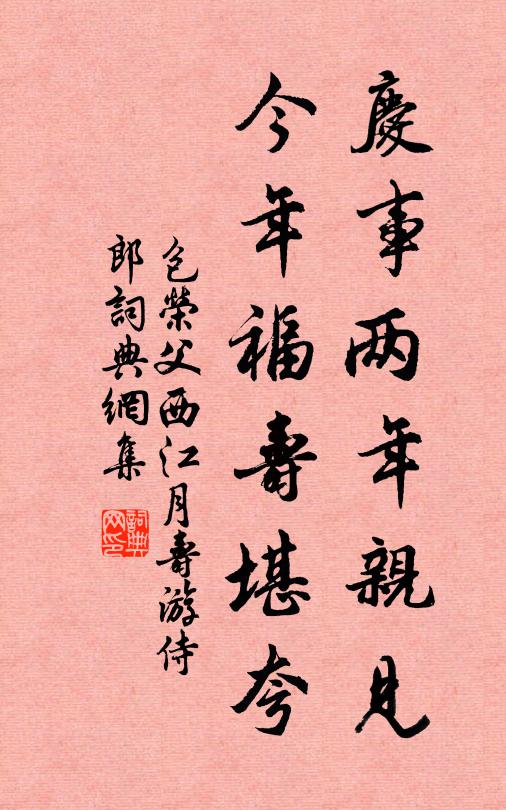 慶事两年親見
今年福壽堪夸
包榮父西江月壽游侍
郎詞典網集
詞典
网印